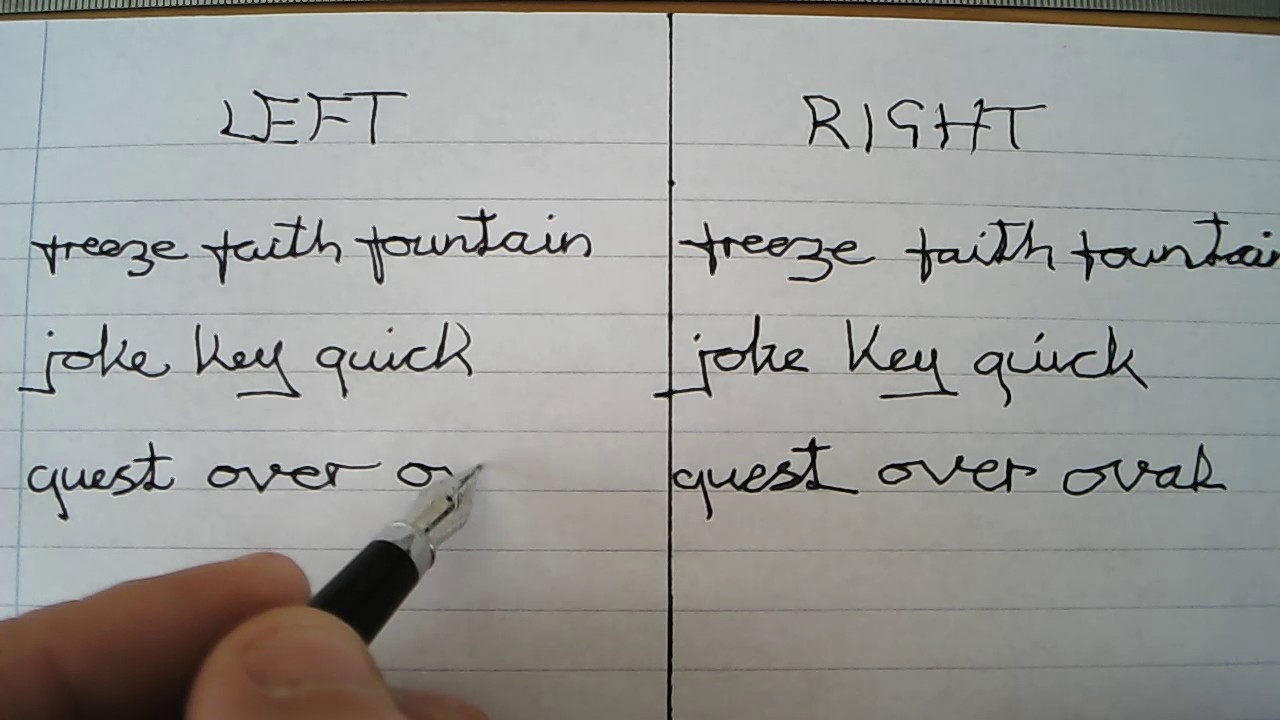 LEFT
freeze faith fountain
joke key quick
quest over o
RIGHT
freeze faith fountai
joke key quick
quest over oval